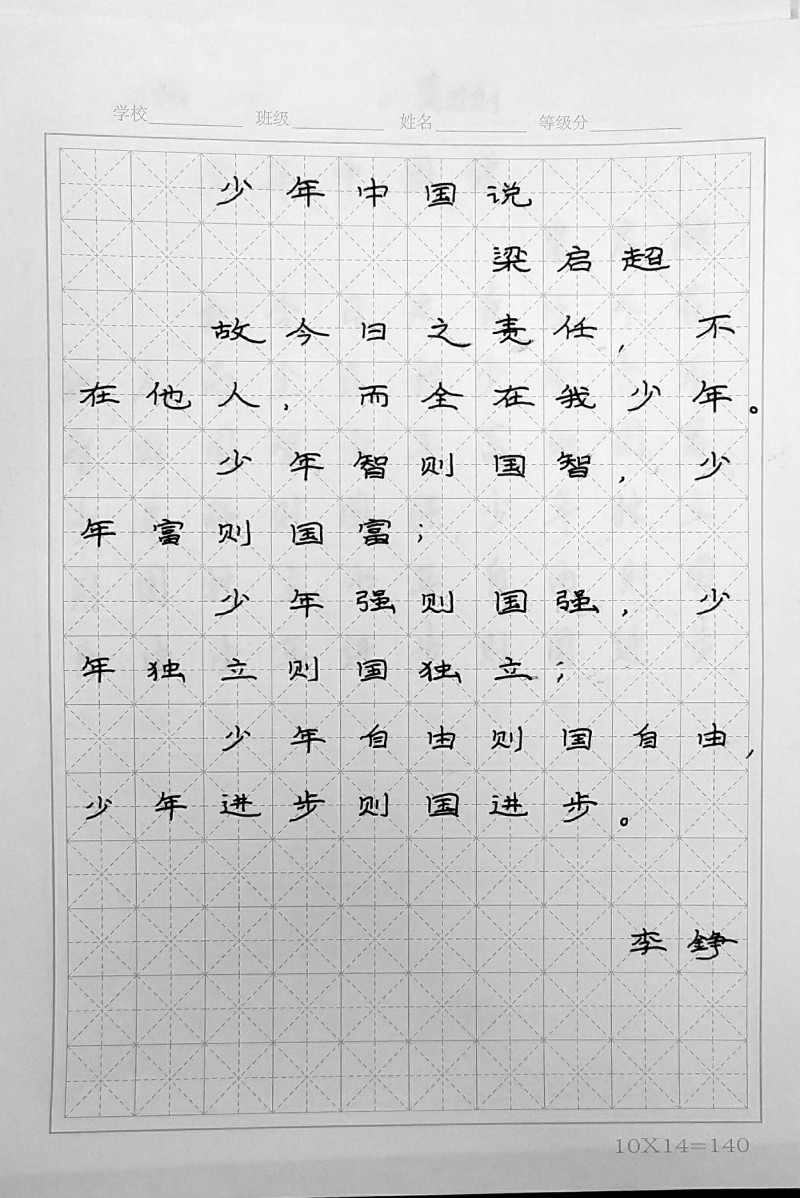 学校 班级 姓名 等级分
少年中国说
梁启超
故今日之责任，不
在他人，而全在我少年。
少年智则国智，少
年富则国富；
少年强则国强，少
年独立则国独立；
少年自由则国自由，
少年进步则国进步。
李铮
10X14=140